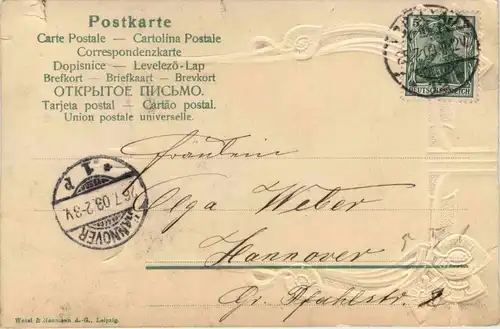 Postkarte
Carte Postale — Cartolina Postale
Correspondenzkarte
Dopisnice — Levelező-Lap
Brefkort — Briefkaart — Brevkort
ОТКРЫТОЕ ПИСЬМО.
Tarjeta postal — Cartão postal.
Union postale universelle.
5
DEUTSCHES REICH
* 1 P
6.7.09.2-3V
HANNOVER
Fräulein
Olga Weber
Hannover
Gr. Pfahlstr. 2
Wezel & Naumann A.-G., Leipzig.